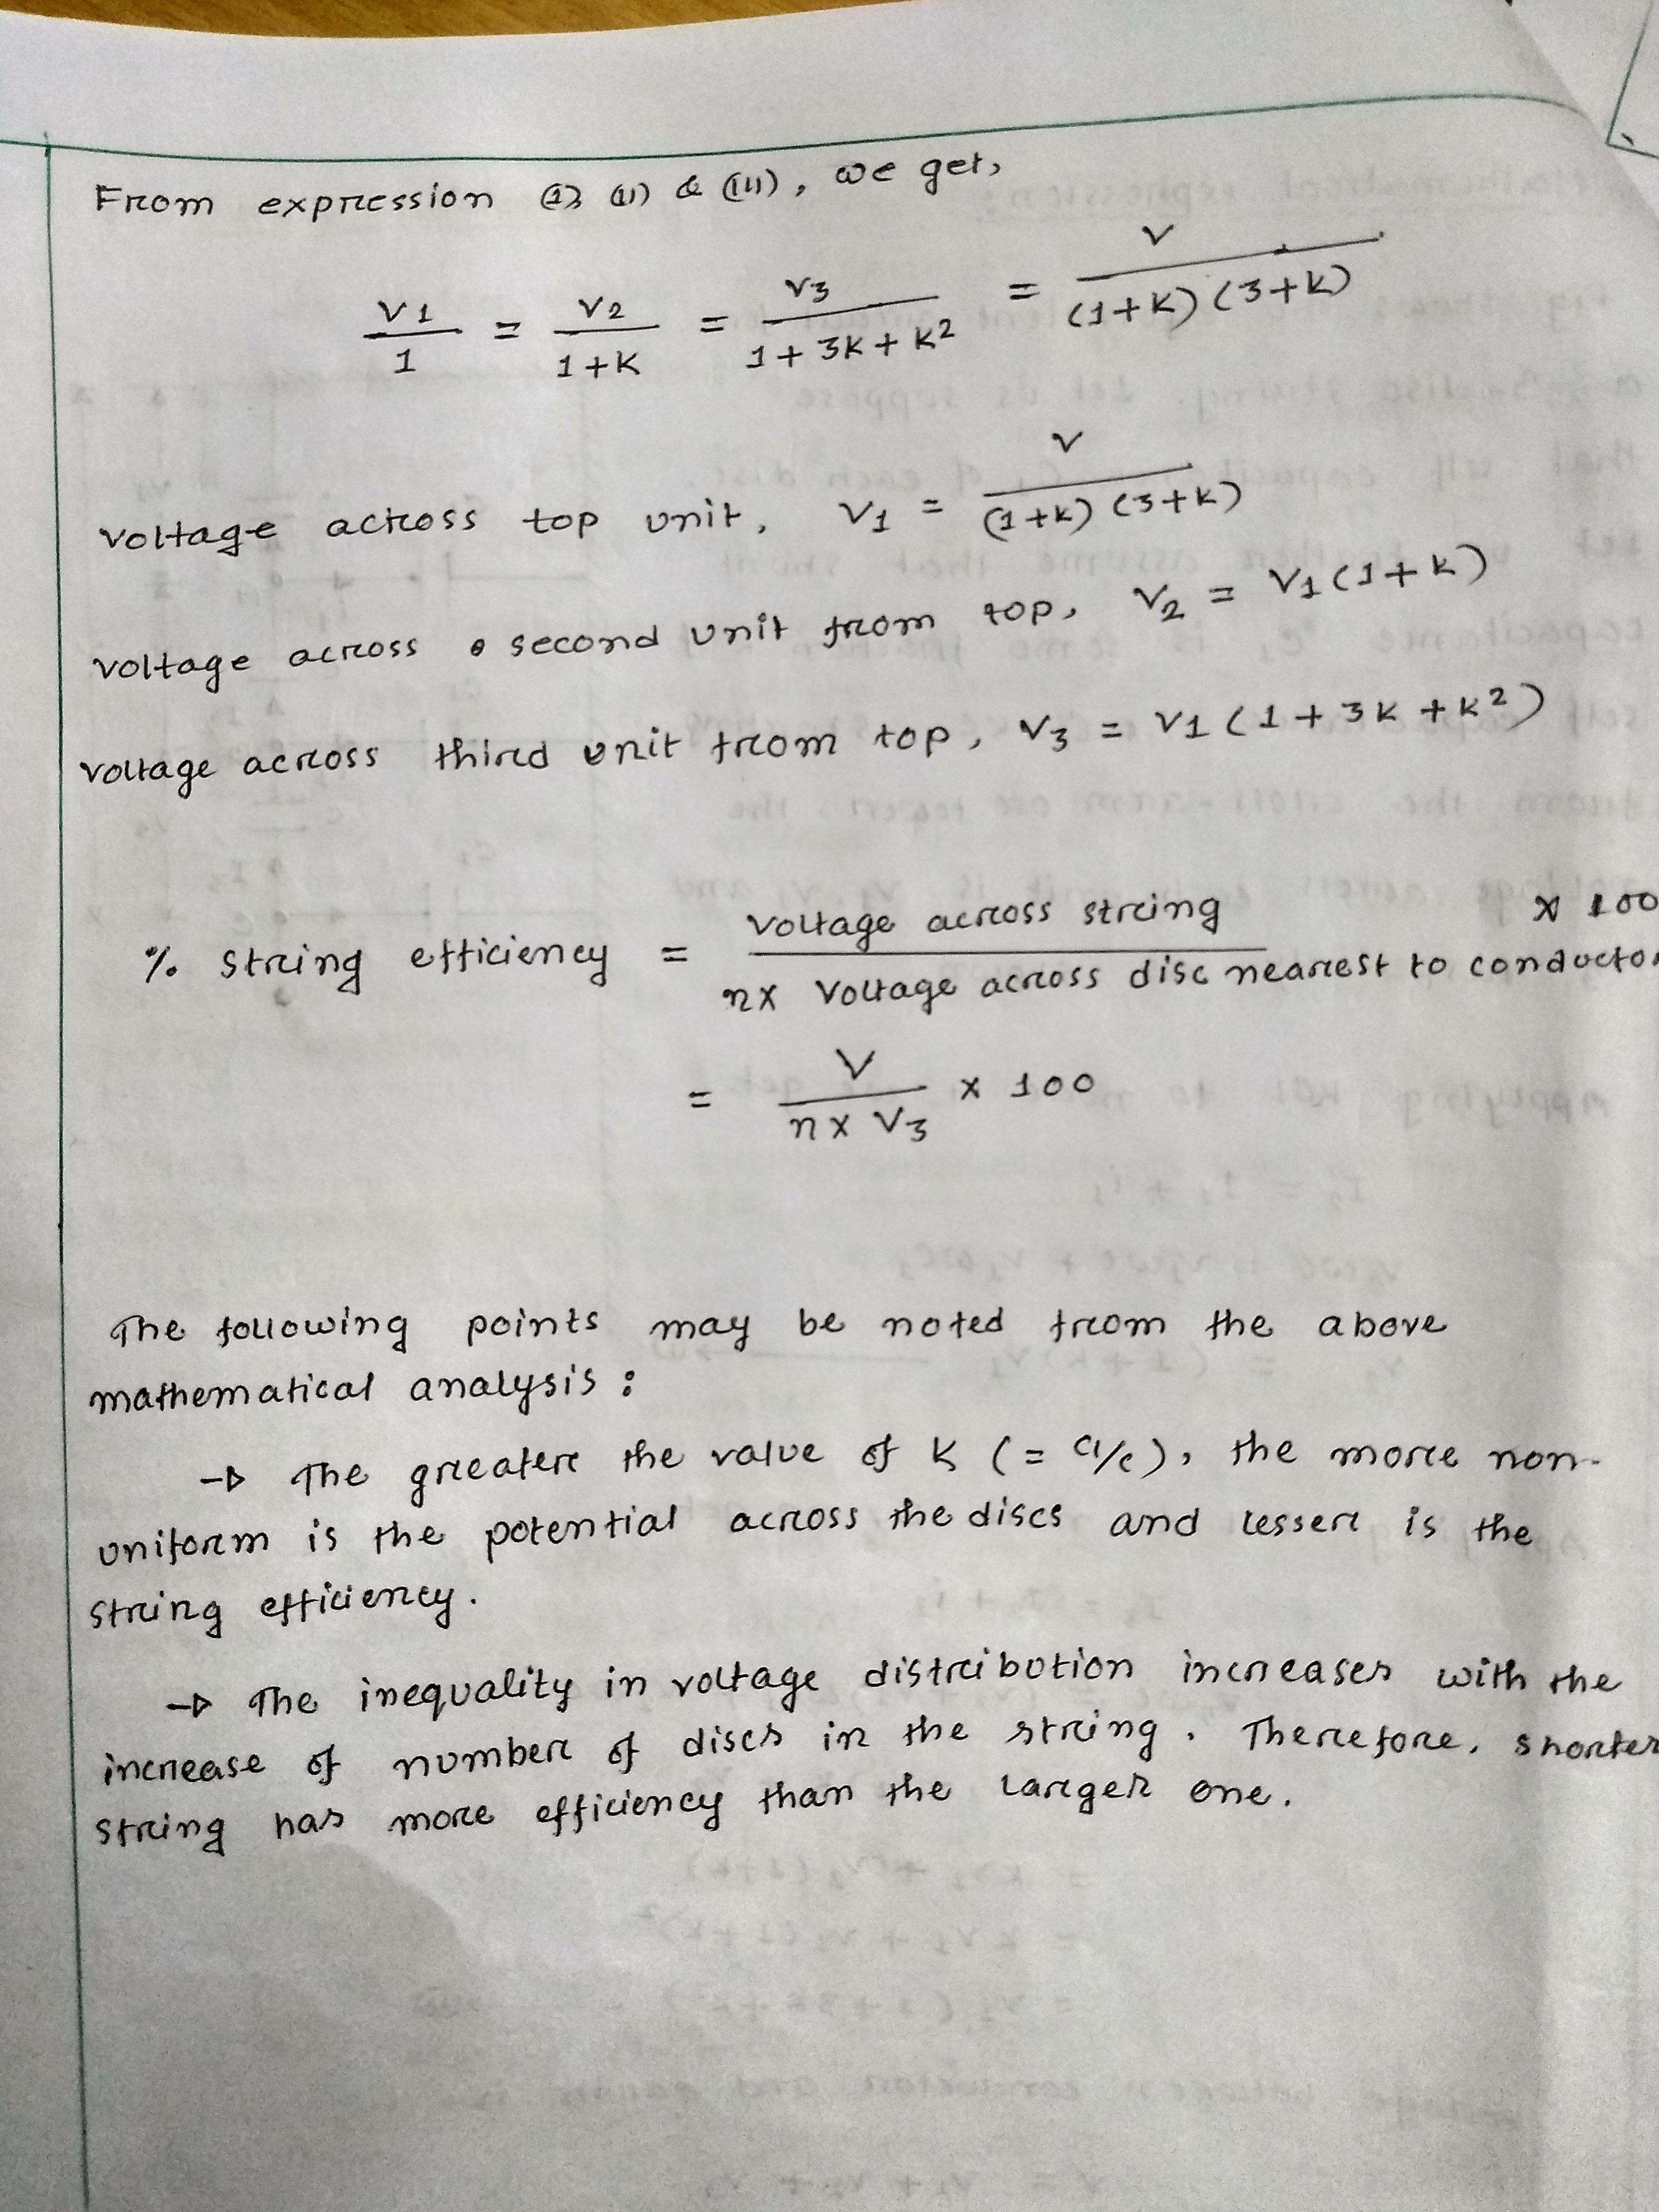 From expression (i), (ii) & (iii), we get,
V1/1 = V2/1+K = V3/1+3K+K² = V/(1+K)(3+K)
Voltage across top unit, V1 = V/(1+K)(3+K)
Voltage across second unit from top, V2 = V1(1+K)
Voltage across third unit from top, V3 = V1(1+3K+K²)
% string efficiency = Voltage across string/n× Voltage across disc nearest to conductor × 100
= V/n×V3 × 100
The following points may be noted from the above
mathematical analysis :
→ The greater the value of K (= C1/C), the more non-
uniform is the potential across the discs and lesser is the
string efficiency.
→ The inequality in voltage distribution increases with the
increase of number of discs in the string. Therefore, shorter
string has more efficiency than the larger one.